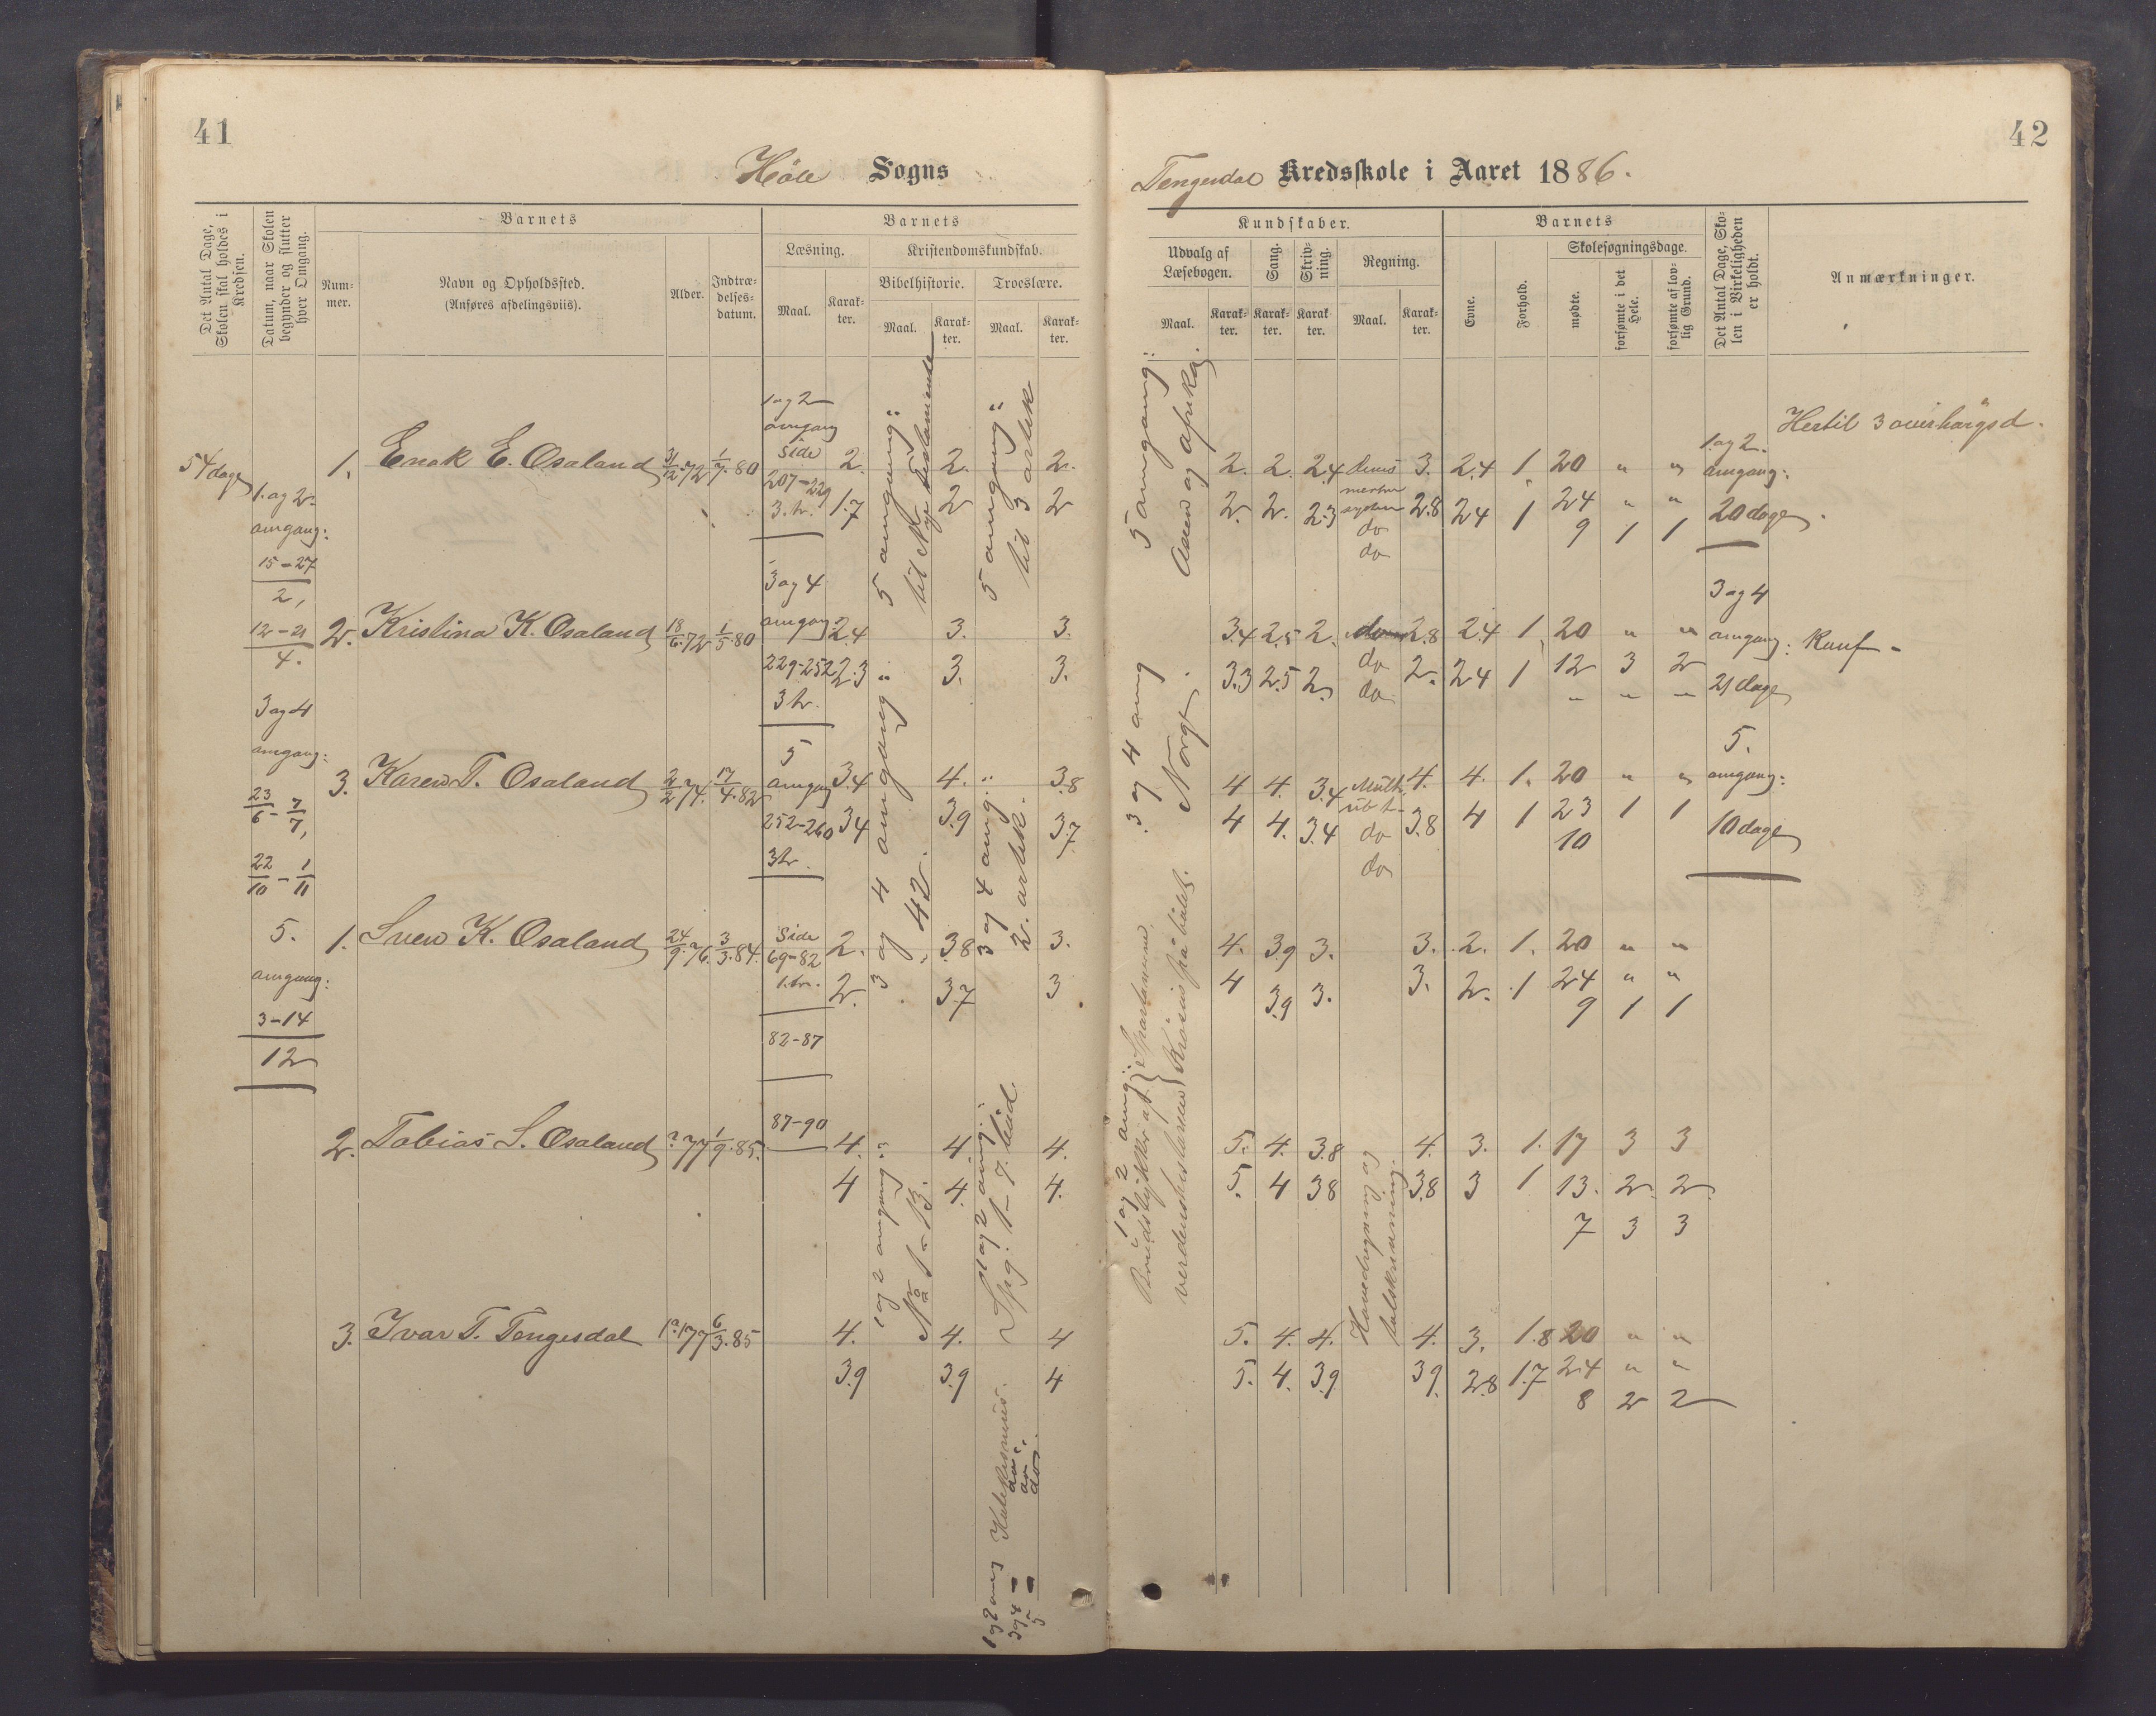 41
42
Höle Sogns
Tengesdal Kredsskole i Aaret 1886.
Det Antal Dage, Skolen skal holdes i Kredsen.
Datum, naar Skolen begynder og slutter hver Omgang.
Barnets
Num-
mer.
Navn og Opholdssted.
(Anføres afdelingsviis).
Alder.
Indtræ-
delses-
datum.
Barnets
Læsning.
Maal.
Karak-
ter.
Kristendomskundskab.
Bibelhistorie.
Maal.
Karak-
ter.
Troeslære.
Maal.
Karak-
ter.
Kundskaber.
Udvalg af
Læsebogen.
Maal.
Karak-
ter.
Sang.
Karak-
ter.
Skriv-
ning.
Karak-
ter.
Regning.
Maal.
Karak-
ter.
Barnets
Evne.
Forhold.
Skolesøgningsdage.
mødte.
forsømte i det Hele.
forsømte af lov-
lig Grund.
Det Antal Dage, Sko-
len i Virkeligheden
er holdt.
Anmærkninger.
54 dage
1. og 2.
omgang:
15-27
2,
12-21
4.
3 og 4
omgang:
23/6 - 7/7,
22/10 - 1/11
5.
omgang:
3-14
12
1. Enok E. Osaland 31/12.72 1/7.80
2. Kristina K. Osaland 18/6.72 1/5.80
3. Karen T. Osaland 2/2 74. 17/4.82
1. Sven K. Osaland 24/9.76. 3/3.84.
2. Tobias S. Osaland ?.77 1/9.85.
3. Ivar T. Tengesdal 77 6/3.85
1 og 2
omgang
side
207-229
3. tr.
3 og 4
omgang
229-252
3 tr.
5
omgang
252-260
3 tr.
side
69-82
1. tr.
82-87
87-90
2.
1.7
2.4
2.3
3.4
3.4
2.
2.
4.
4
4.
3.9
5 omgang:
til Nye testamente
3 og 4 omgang:
42.
1 og 2 omgang:
No 1-13.
2.
2
3.
3.
4.
3.9
3.8
3.7
4.
4.
4.
3.9
5 omgang:
til 3 artik
3 og 4 omg.:
2. artik.
1 og 2 omg.:
Spg. 1-7. bud.
1 og 2 omg Katekismus.
3 og 4 - do
5 - do
2.
2
3.
3.
3.8
3.7
3.
3
4.
4.
4
4
5 omgang:
Asien og afrika.
3 og 4 omg
Norge.
1 og 2 omg.:
Brudstykker af verdenshistorien { Spartanerne. Krösus på bålet.
2. 2. 2.4 3. 2.4 1. 20 " "
2. 2. 2.3 do 2.8 24 1 24 " "
do 9 1 1
3.4 2.5 2. 2.8 2.4 1. 20 " "
3.3 2.5 2. do 2. 24 1 12 3 2
do - - -
4 4. 3.4 Mult. 4. 4. 1. 20 " "
4 4. 3.4 do 3.8 4 1 23 1 1
do 10
4. 3.9 3. 3. 2. 1. 20 " "
4 3.9 3. 3. 2. 1 24 " "
9 1 1
5. 4. 3.8 4. 3. 1. 17 3 3
5. 4 38 3.8 3 1 13. 2. 2
7 3 3
5. 4. 4. 4. 3. 1.8 20 " "
5. 4. 3.9 39. 2.8 1.7 24 " "
8 2 2
Hovedregning og
talskrivning.
1. og 2.
omgang:
20 dage
3 og 4
omgang:
21 dage
5.
omgang:
10 dage
Hertil 3 overhøringsd.
Kunf.